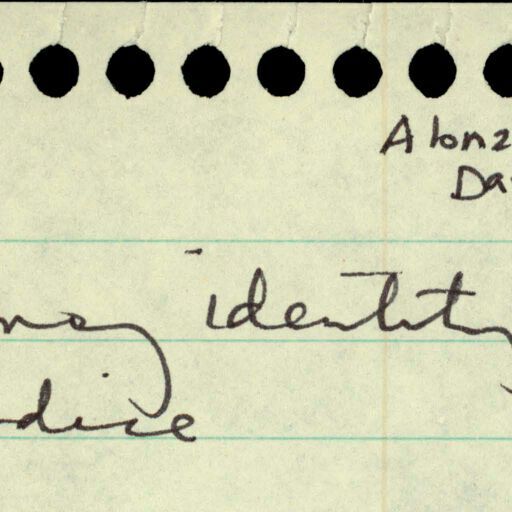 Alonz
Da
identity
dice